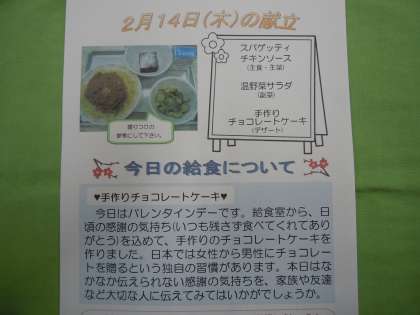 2月14日(木)の献立
スパゲッティ
チキンソース
(主食・主菜)
温野菜サラダ
(副菜)
手作り
チョコレートケーキ
(デザート)
盛りつけの
参考にして下さい。
今日の給食について
♥手作りチョコレートケーキ♥
今日はバレンタインデーです。給食室から、日
頃の感謝の気持ち(いつも残さず食べてくれてあり
がとう)を込めて、手作りのチョコレートケーキを
作りました。日本では女性から男性にチョコレート
を贈るという独自の習慣があります。本日はな
かなか伝えられない感謝の気持ちを、家族や友達
など大切な人に伝えてみてはいかがでしょうか。